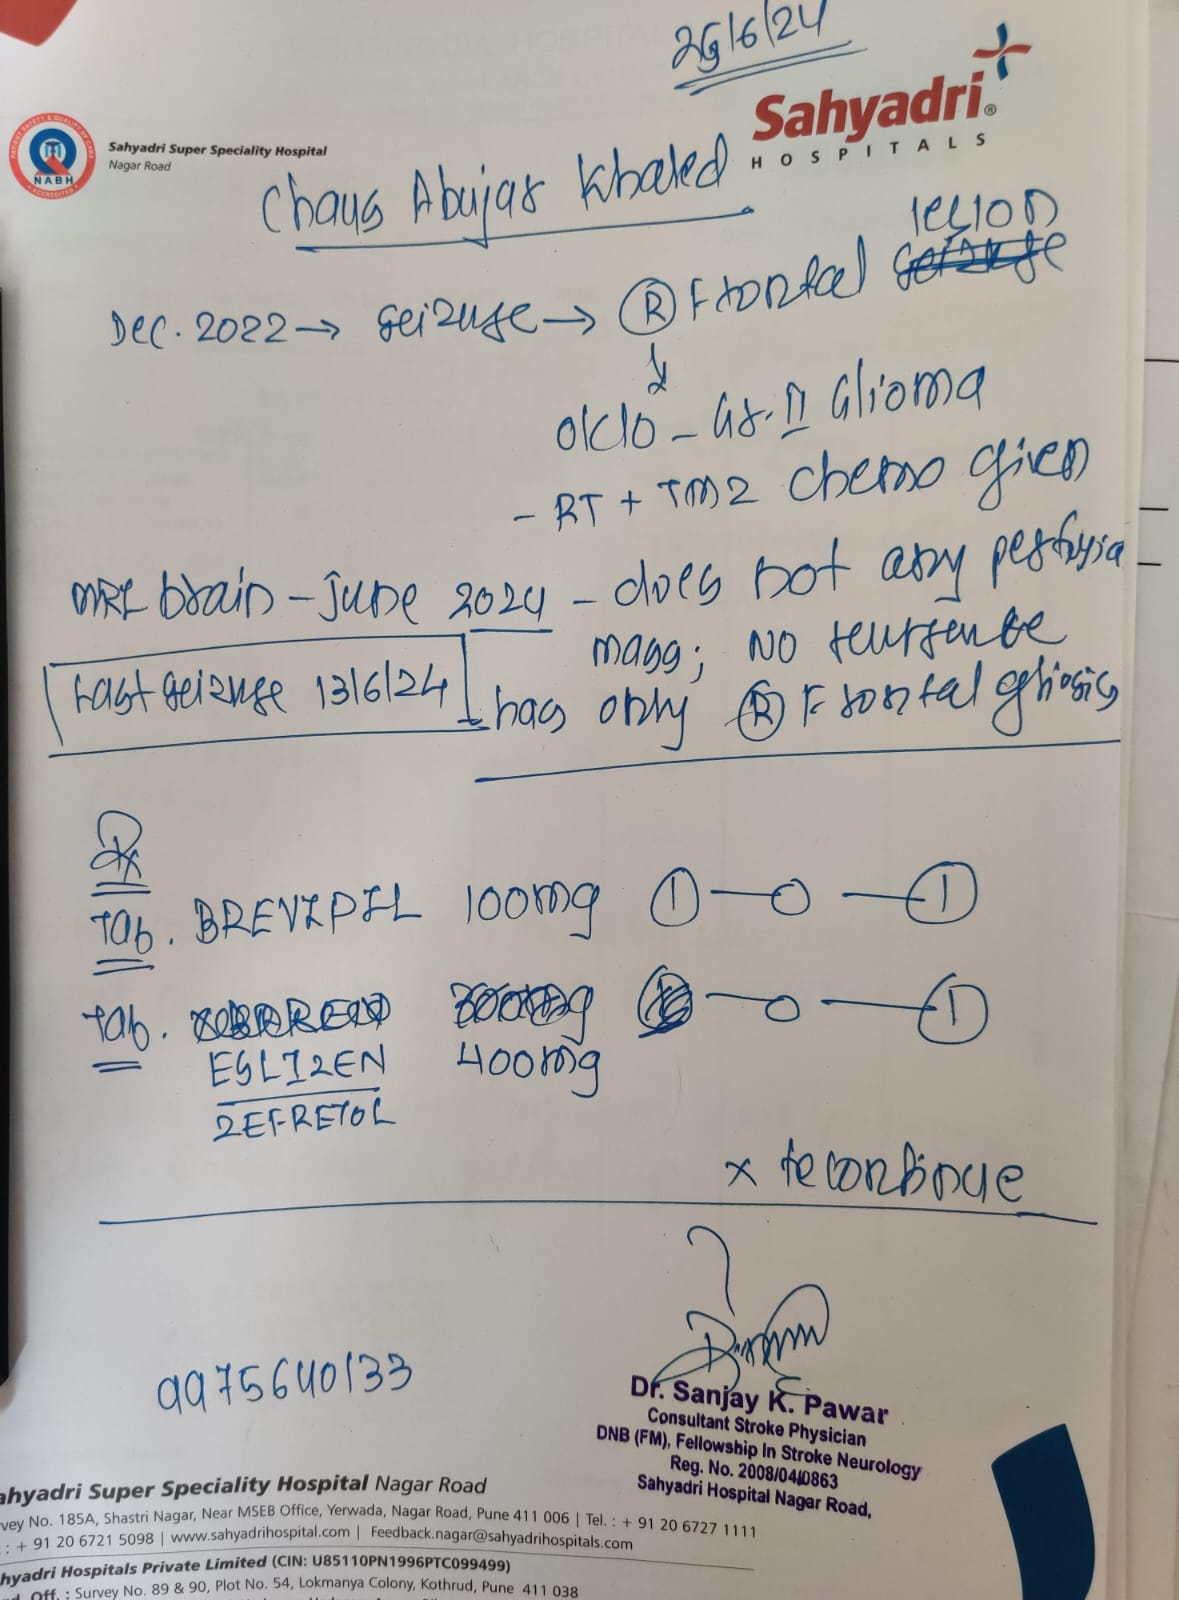 25/6/24
Sahyadri
HOSPITALS
PATIENT SAFETY & QUALITY OF CARE
NABH
ACCREDITED
Sahyadri Super Speciality Hospital
Nagar Road
Chaus Abujar Khaled
Dec. 2022 → seizure → (R) Frontal lesion
↓
O/C/O - Gr. II Glioma
- RT + TMZ chemo given
MRI brain - June 2024 - does not any perfusion
mass; NO recurrence
Last seizure 13/6/24
has only (R) Frontal gliosis
Rx
Tab. BREVIPIL 100mg 1 — 0 — 1
Tab. — 0 — 1
ESLIZEN 400mg
ZEFRETOL
x to continue
9975640133
Dr. Sanjay K. Pawar
Consultant Stroke Physician
DNB (FM), Fellowship In Stroke Neurology
Reg. No. 2008/04/0863
Sahyadri Hospital Nagar Road,
ahyadri Super Speciality Hospital Nagar Road
vey No. 185A, Shastri Nagar, Near MSEB Office, Yerwada, Nagar Road, Pune 411 006 | Tel. : + 91 20 6727 1111
: + 91 20 6721 5098 | www.sahyadrihospital.com | Feedback.nagar@sahyadrihospitals.com
hyadri Hospitals Private Limited (CIN: U85110PN1996PTC099499)
Off. : Survey No. 89 & 90, Plot No. 54, Lokmanya Colony, Kothrud, Pune 411 038